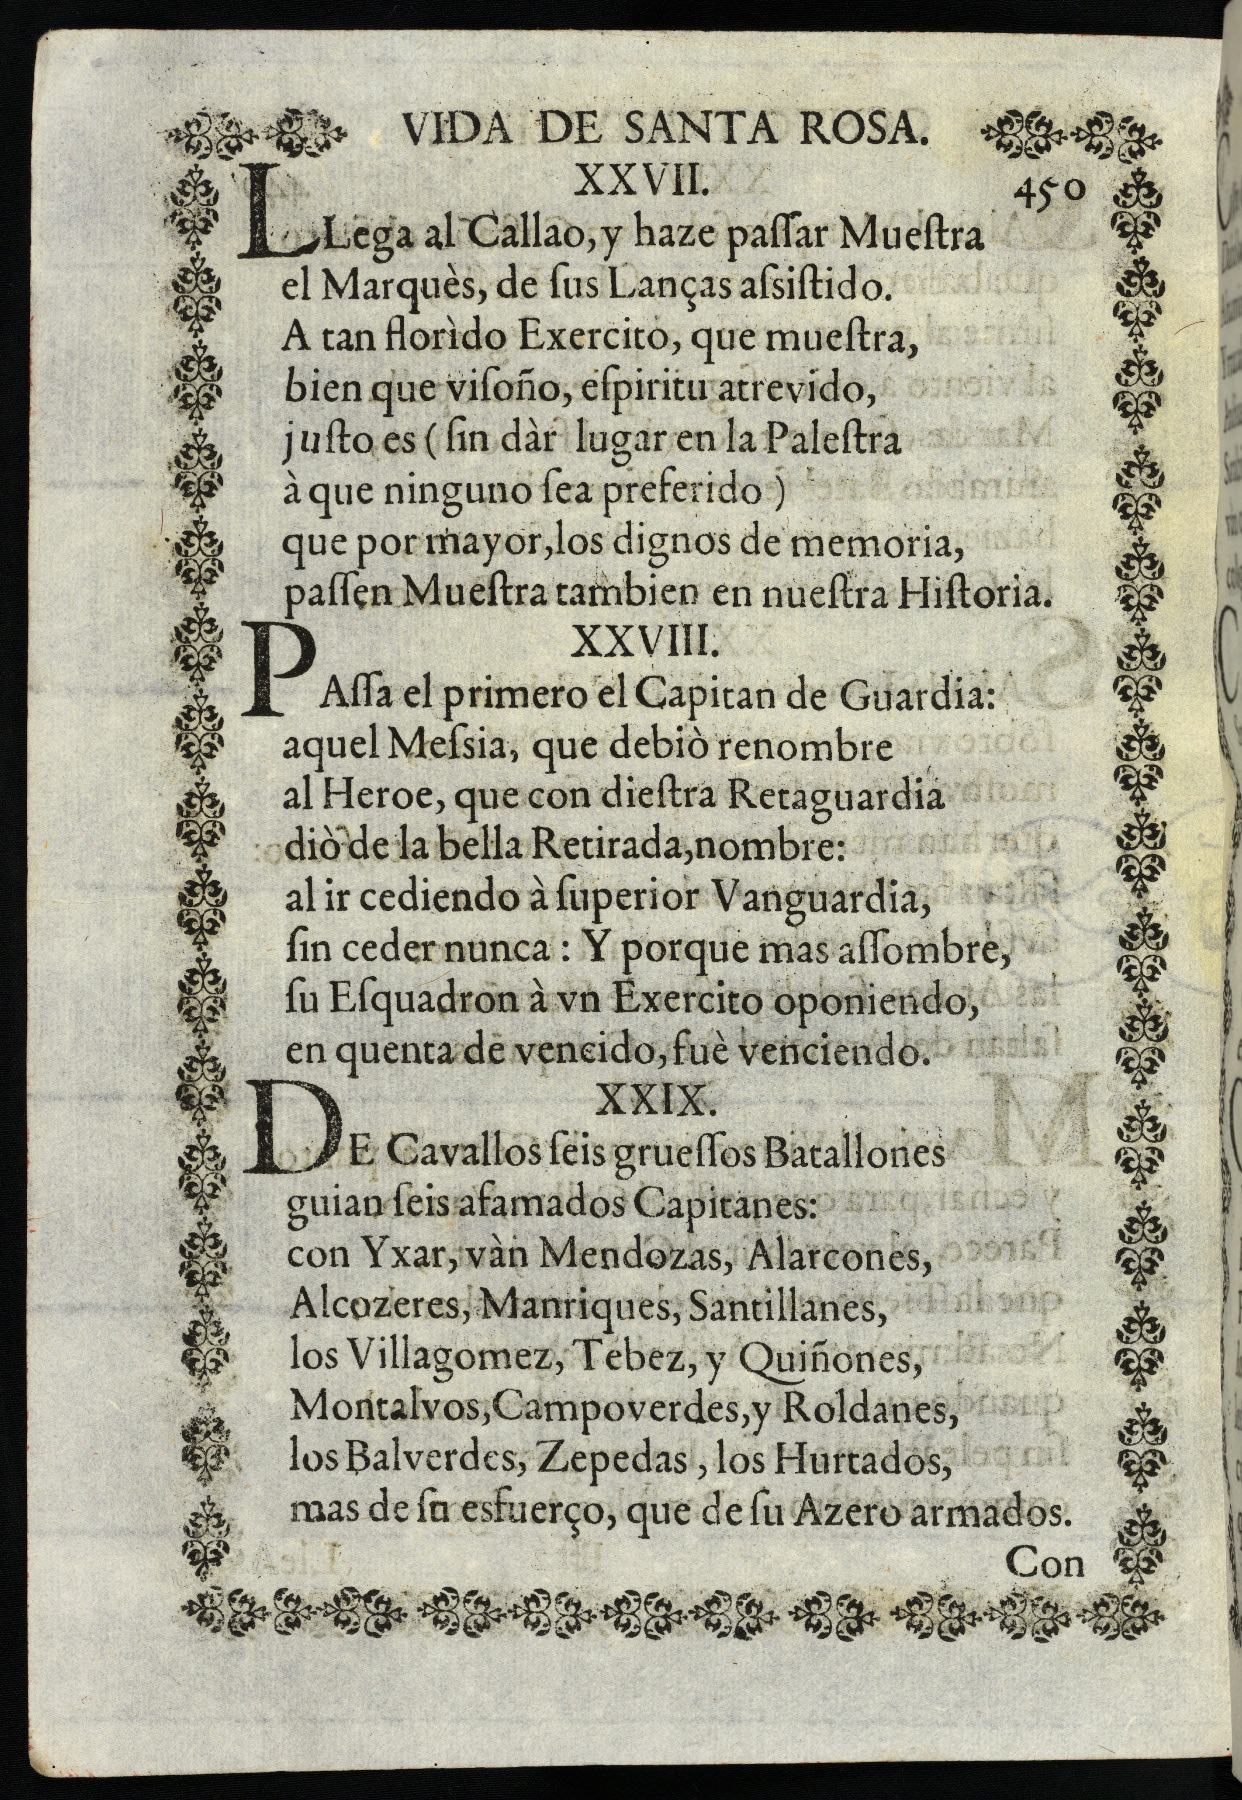 VIDA DE SANTA ROSA.
XXVII. 450
LLega al Callao, y haze paſſar Mueſtra
el Marquès, de ſus Lanças aſsiſtido.
A tan florìdo Exercito, que mueſtra,
bien que viſoño, eſpiritu atrevido,
juſto es ( ſin dàr lugar en la Paleſtra
à que ninguno ſea preferido )
que por mayor, los dignos de memoria,
paſſen Mueſtra tambien en nueſtra Hiſtoria.
XXVIII.
PAſſa el primero el Capitan de Guardia:
aquel Meſsia, que debiò renombre
al Heroe, que con dieſtra Retaguardia
diò de la bella Retirada, nombre:
al ir cediendo à ſuperior Vanguardia,
ſin ceder nunca : Y porque mas aſſombre,
ſu Eſquadron à vn Exercito oponiendo,
en quenta de vencido, fuè venciendo.
XXIX.
DE Cavallos ſeis grueſſos Batallones
guian ſeis afamados Capitanes:
con Yxar, vàn Mendozas, Alarcones,
Alcozeres, Manriques, Santillanes,
los Villagomez, Tebez, y Quiñones,
Montalvos, Campoverdes, y Roldanes,
los Balverdes, Zepedas , los Hurtados,
mas de ſu esfuerço, que de ſu Azero armados.
Con